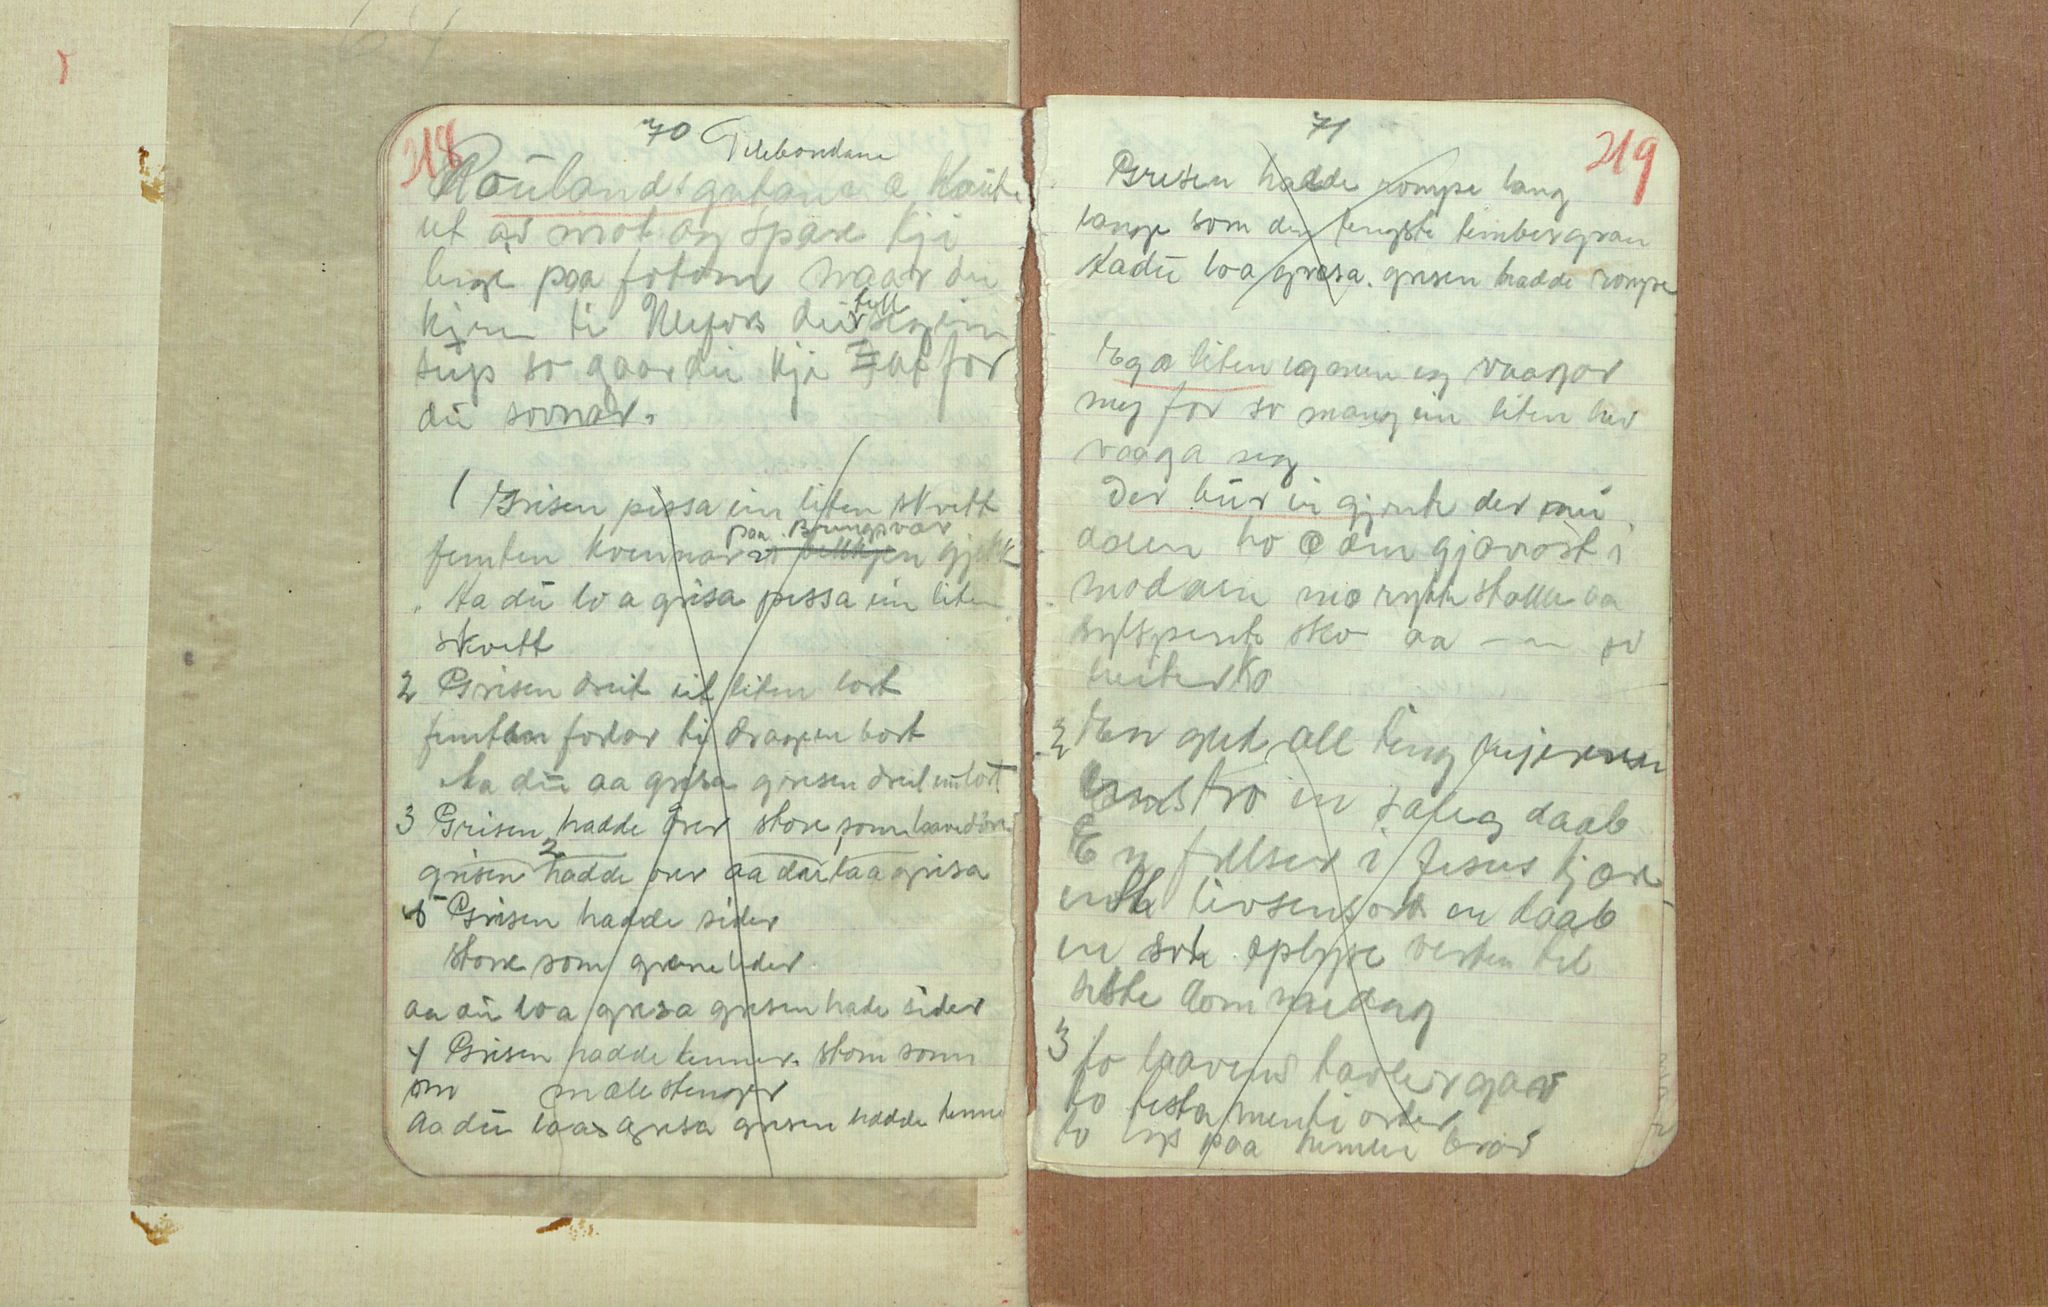 70
218
Telebondane
Raulandsgutane æ Kaute
ut av mot og spare kji
lengi paa fotom naar du
kjem ti Nufors du full
sup so gaar du kji at for
du sovnar.
1 Grisen pissa ein liten skvett
paa Bringsvær
femten kvennar gjekk
Aa du lo a grisa pissa ein liten
skvett
2 Grisen dreit eit liten lort
femten forlar ti dragen bort
Aa du aa grisa grisen dreit ein lort
3 Grisen hadde ører store som laavedøre
2
grisen hadde ører aa du laa grisa
5 Grisen hadde sider
store som grinelider
aa du lo a grisa grisen hade sider
4 Grisen hadde tenner store som
mælestenger
Aa du laa grisa grisen hadde tenne
71
219
Grisen hadde rompe lang
lange som den lengste timbergran
Aa du lo a grisa. grisen hadde rompe
Eg æ liten eg men eg vaagar
meg for so mang ein liten her
vaaga seg
Der bur ei gjente der nu
dalen ho æ den gjævast i
modalen mæ rykte stakke aa
sylspente sko aa
heiter ho
2 En gud all ting
tro en salig daab
En frelser i Jesus kjær
livsens ord en daab
en sol oplyse verden til
siste dommedag
3 to laavend tavler gav
to testamenti order
to lys paa himlen